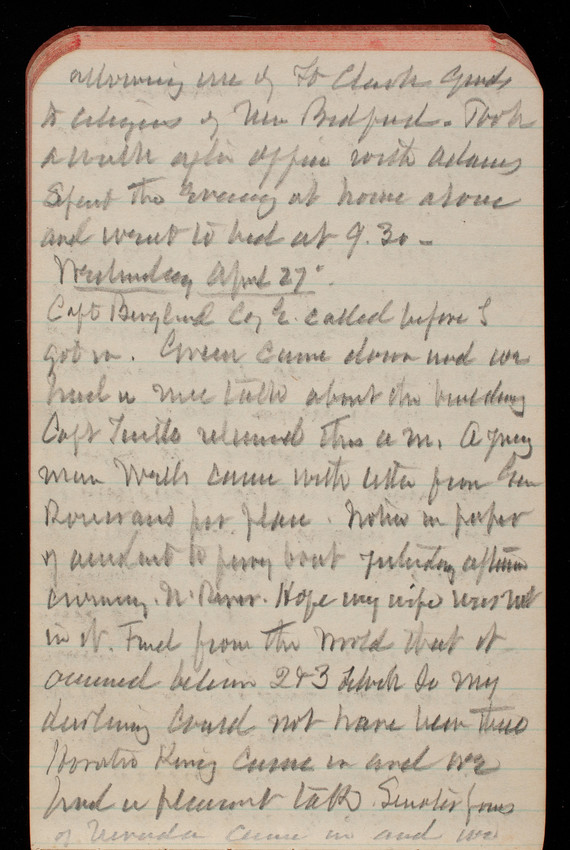 allowing use of Ft Clark Grounds
to citizens of New Bedford. Took
a walk after office with Adams
Spent the Evening at home alone
and went to bed at 9.30 -
Wednesday April 27"
Capt Bergland Cog E. called before I
got in. Green came down and we
had a nice talk about the building
Capt Tuttle returned this a.m. A young
man Wells came with letter from Gen
Rosecrans for place. Notice in paper
of accident to ferry boat yesterday afternoon
N. River. Hope my wife was not
in it. Find from the World that it
occurred between 2 & 3 so my
darling could not have been there
Horatio King came in and we
had a pleasant talk. Senator Jones
of Nevada came in and we